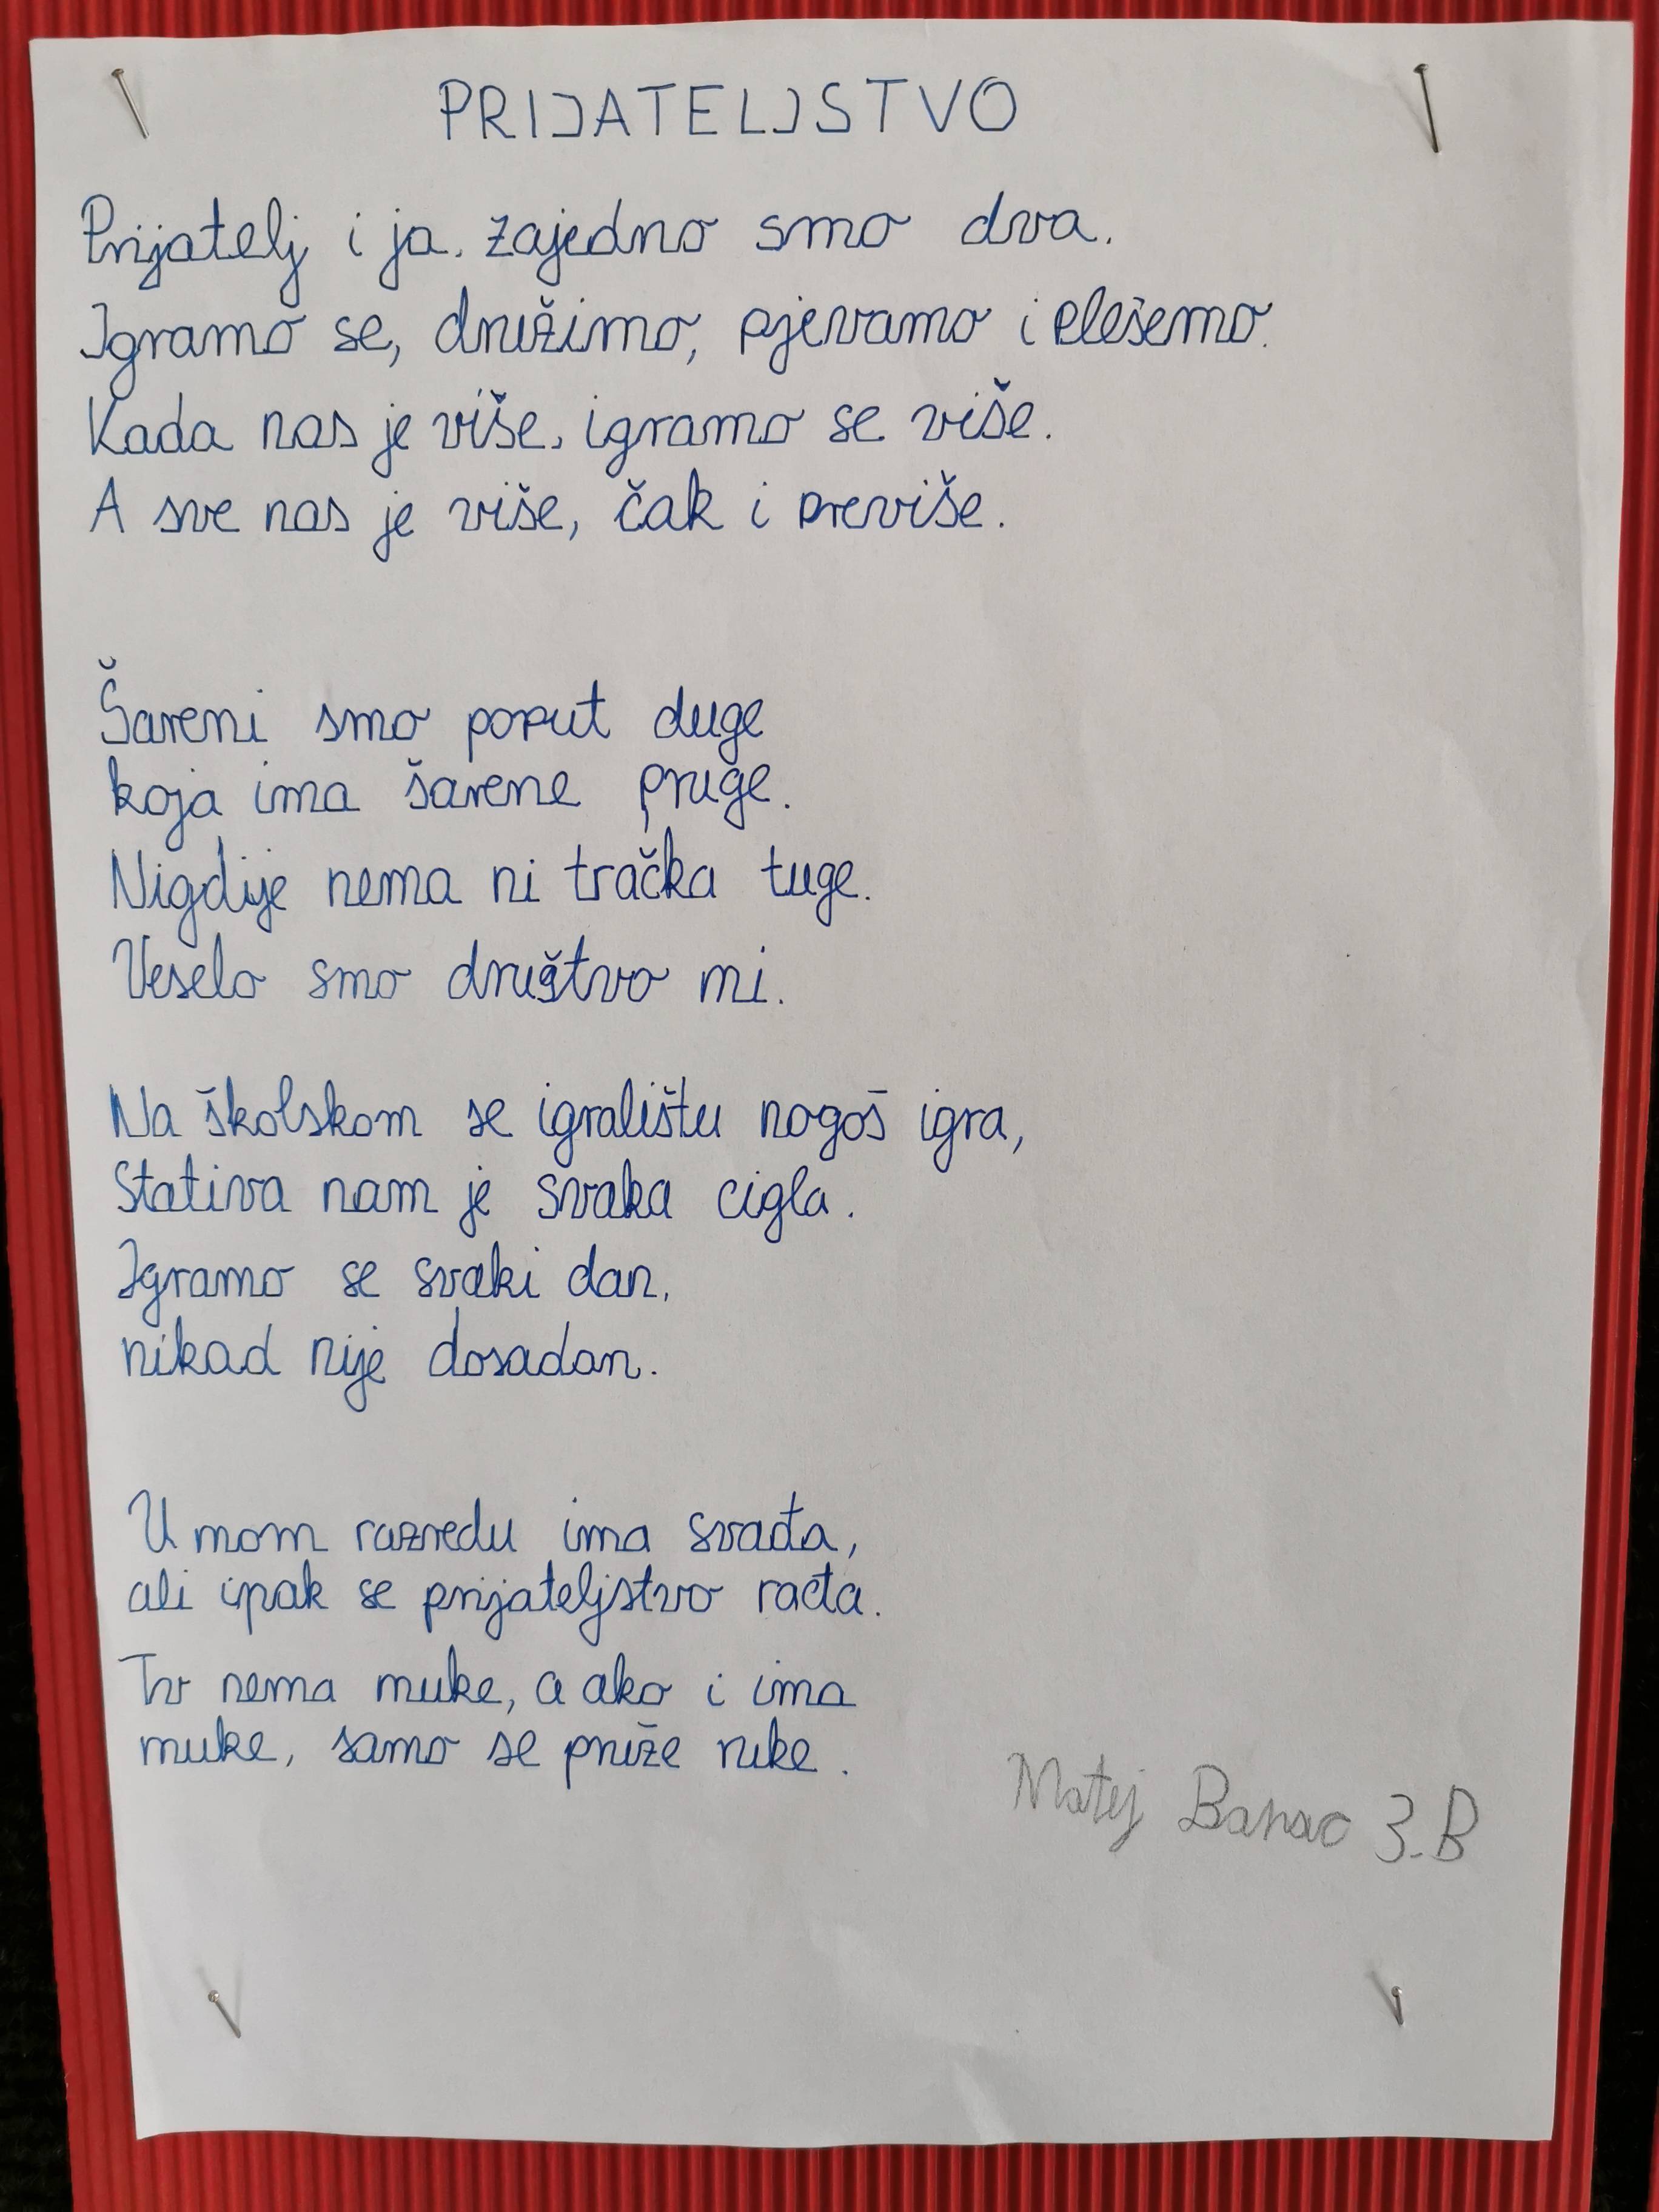 PRIJATELJSTVO
Prijatelj i ja, zajedno smo dva.
Igramo se, družimo, pjevamo i plešemo.
Kada nas je više, igramo se više.
A sve nas je više, čak i previše.
Šareni smo poput duge
koja ima šarene pruge.
Nigdije nema ni tračka tuge.
Veselo smo društvo mi.
Na školskom se igralištu nogoš igra,
Stativa nam je svaka cigla.
Igramo se svaki dan,
nikad nije dosadan.
U mom razredu ima svađa,
ali ipak se prijateljstvo rađa.
To nema muke, a ako i ima
muke, samo se pruže ruke.
Matej Banac 3.B